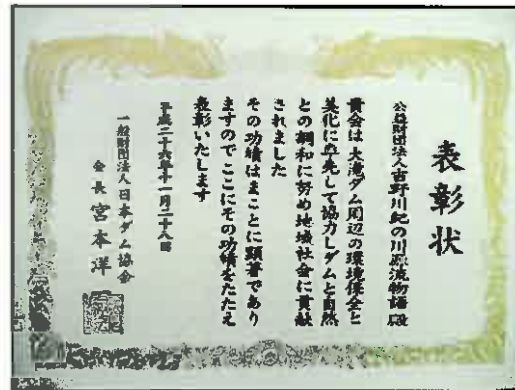 表彰状
公益財団法人吉野川紀の川源流物語殿
貴会は大滝ダム周辺の環境保全と
美化に率先して協力しダムと自然
との調和に努め地域社会に貢献
されました
その功績はまことに顕著であり
ますのでここにその功績をたたえ
表彰いたします
平成二十六年十一月二十八日
一般財団法人日本ダム協会
会長宮本洋一